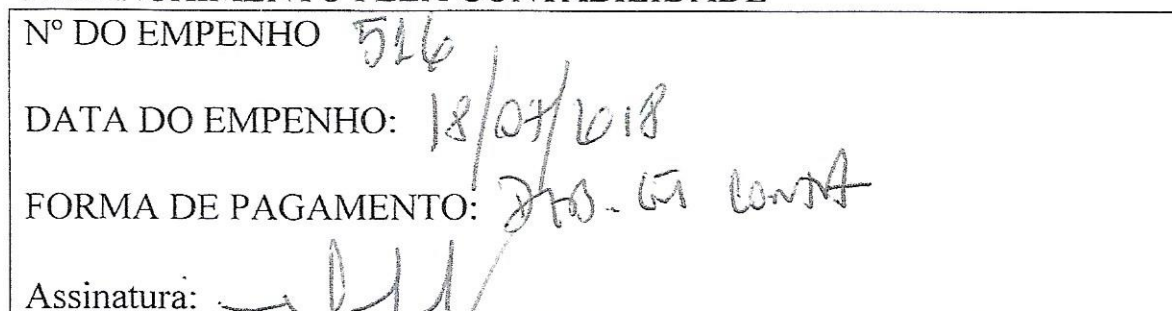 Nº DO EMPENHO 516
DATA DO EMPENHO: 18/07/2018
FORMA DE PAGAMENTO: DEB. EM CONTA
Assinatura: